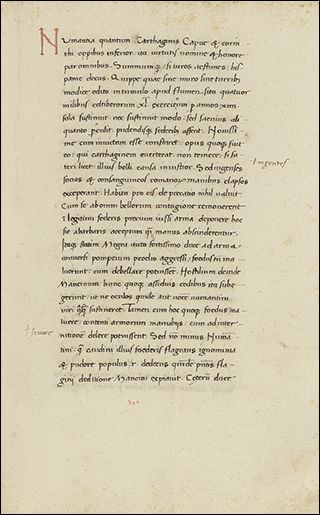 Numantia quantum Carthaginis Capue & corin
thi opibus inferior. ita virtutis nomine & honore
par omnibus. Summumq; si viros aestimes: his-
panie decus. Quippe quae sine muro sine turribꝰ
modice edito in tumulo apud flumen sita quatuor
milibus celtiberorum XL exercituum p annos
sola sustinuit nec sustinuit modo. sed saevius ali
quanto perculit. pudendisq; federib affecit. Novissi
me cum invictam esse constaret. opus quoq; fuit
eo: qui carthaginem everterat. non temere. si fa-
teri licet illius belli causa iniustior. Sed ingenses
socios & consanguineos romanorum manibus elapsos
exceperant. Habita pro eis deprecatio nihil valuit
Cum se ab omni bellorum contagione removerent
legitimi federis precium iussi arma deponere hoc
sic a barbaris acceptum q̃ manus absinderentur
Itaq; statim Megra vico fortissimo duce ad arma
conversi pompeium proelio aggressi: foedus tn̄ ma
luerunt cum debellare potuissent. Hostilium deinde
Mancinum hunc quoq; assiduis cedibus ita sube
gerunt. ut ne oculos quide aut voce numantini
viri q̃sq̃ sustineret. Tamen cum hoc quoq; foedus ma
luere contenti armorum manubiis: cum ad inter
nitionē delere potuissent. Sed nō minus Numa
tini q̃ caudini illius foederis flagrans ignominia
& pudore populus. r. dedecus quide pn̄tis fla-
gitii deditione Mancini expiavit. Ceterū duce